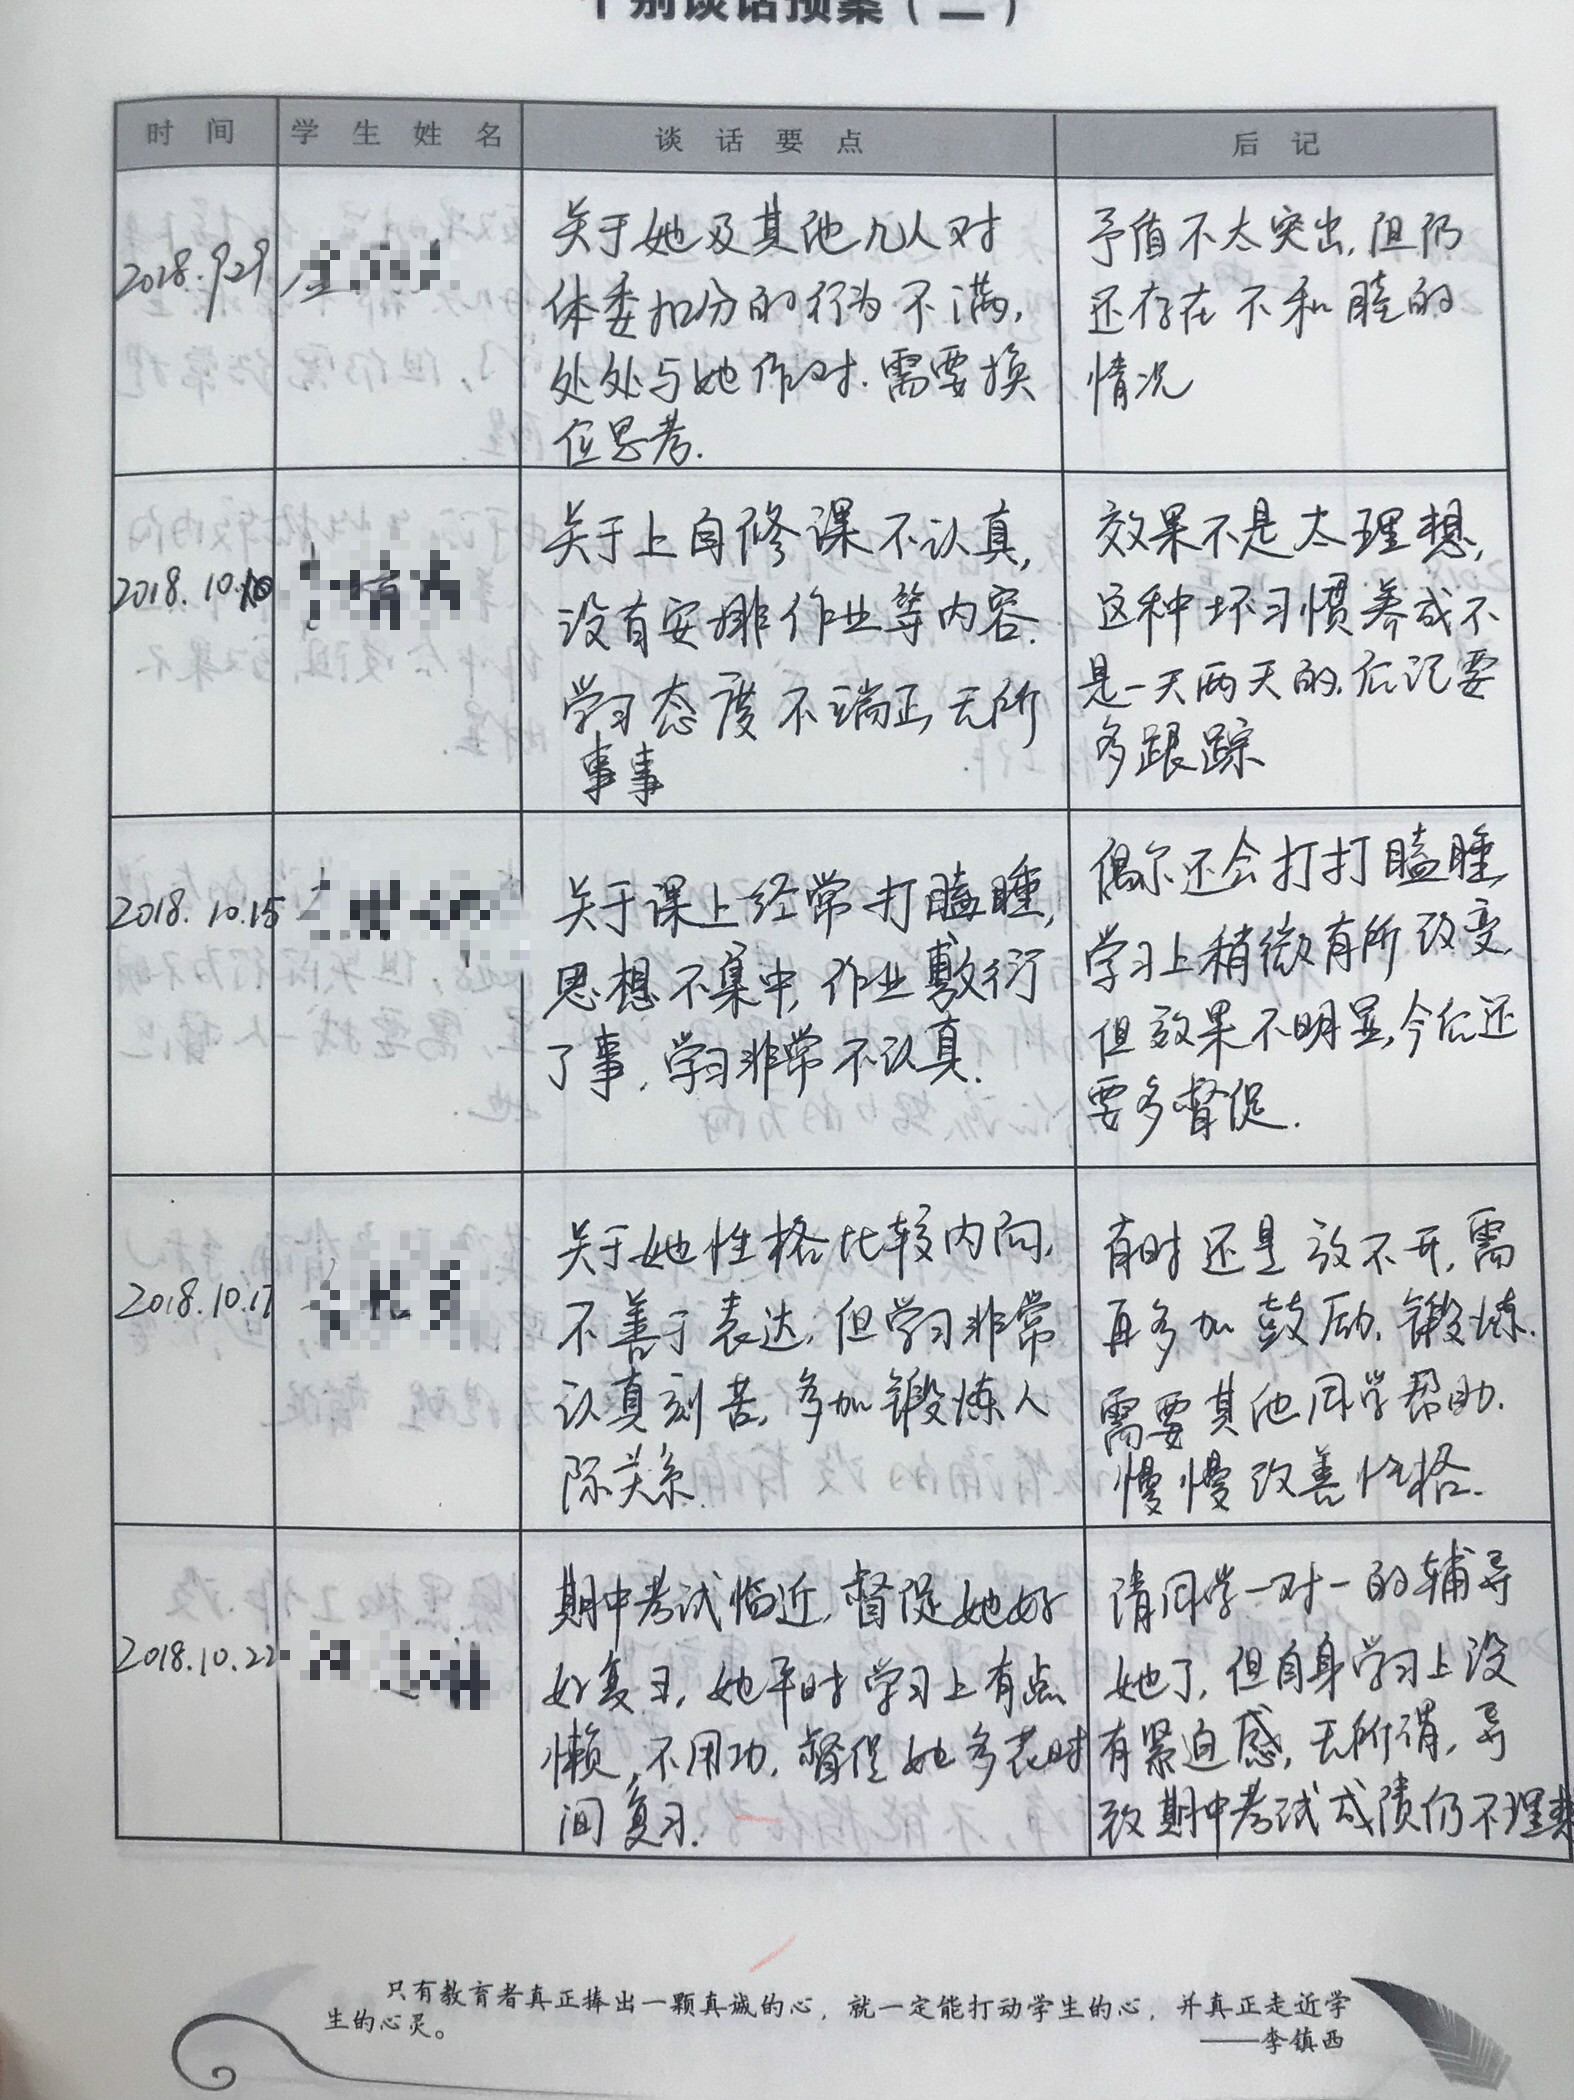 个别谈话预案（二）
时间 学生姓名 谈话要点 后记
2018.9.29
关于她及其他几人对
体委扣分的行为不满,
处处与她作对.需要换
位思考.
矛盾不太突出,但仍
还存在不和睦的
情况
2018.10.10
关于上自修课不认真,
没有安排作业等内容.
学习态度不端正,无所
事事
效果不是太理想,
这种坏习惯养成不
是一天两天的,后记要
多跟踪
2018.10.15
关于课上经常打瞌睡,
思想不集中,作业敷衍
了事,学习非常不认真.
偶尔还会打打瞌睡,
学习上稍微有所改变,
但效果不明显,今后还
要多督促.
2018.10.17
关于她性格比较内向,
不善于表达,但学习非常
认真刻苦,多加锻炼人
际关系.
有时还是放不开,需
再多加鼓励,锻炼.
需要其他同学帮助.
慢慢改善性格.
2018.10.22
期中考试临近,督促她好
好复习,她平时学习上有点
懒,不用功,督促她多花时
间复习.
请同学一对一的辅导
她了,但自身学习上没
有紧迫感,无所谓,导
致期中考试成绩仍不理想
只有教育者真正捧出一颗真诚的心，就一定能打动学生的心，并真正走近学
生的心灵。
——李镇西